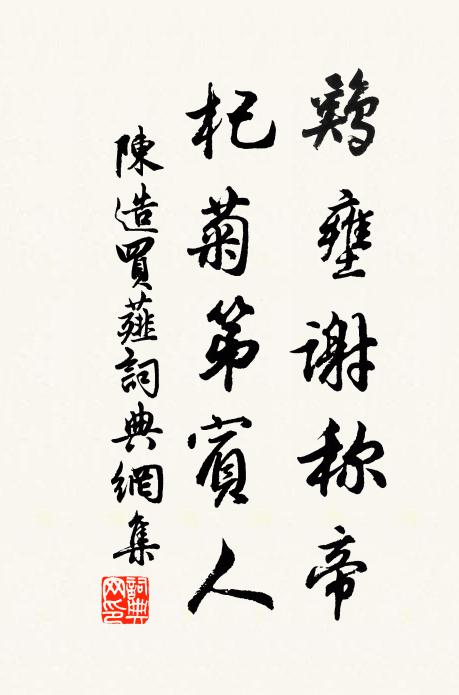 鷄壅谢称帝
杞菊第賓人
陳造買薤詞典網集
詞典網印